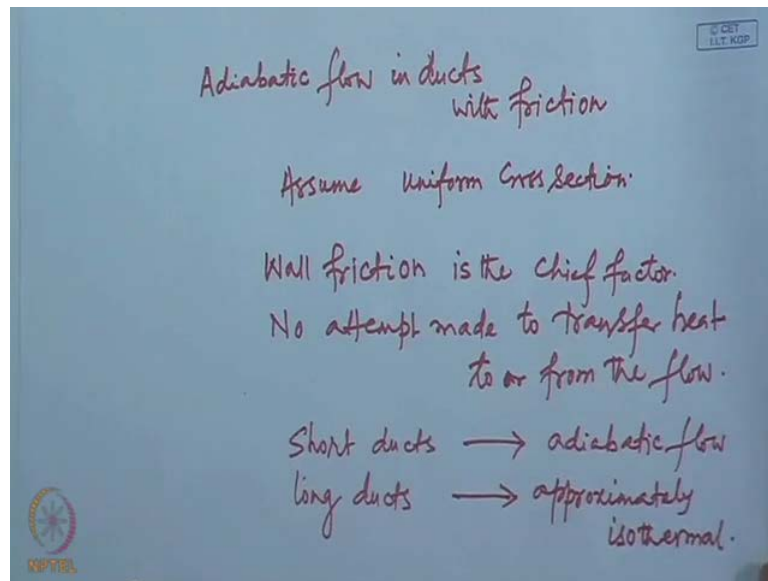 © CET
I.I.T. KGP
Adiabatic flow in ducts
with friction
Assume uniform Cross Section.
Wall friction is the chief factor.
No attempt made to transfer heat
to or from the flow.
Short ducts → adiabatic flow
long ducts → approximately
isothermal.
NPTEL